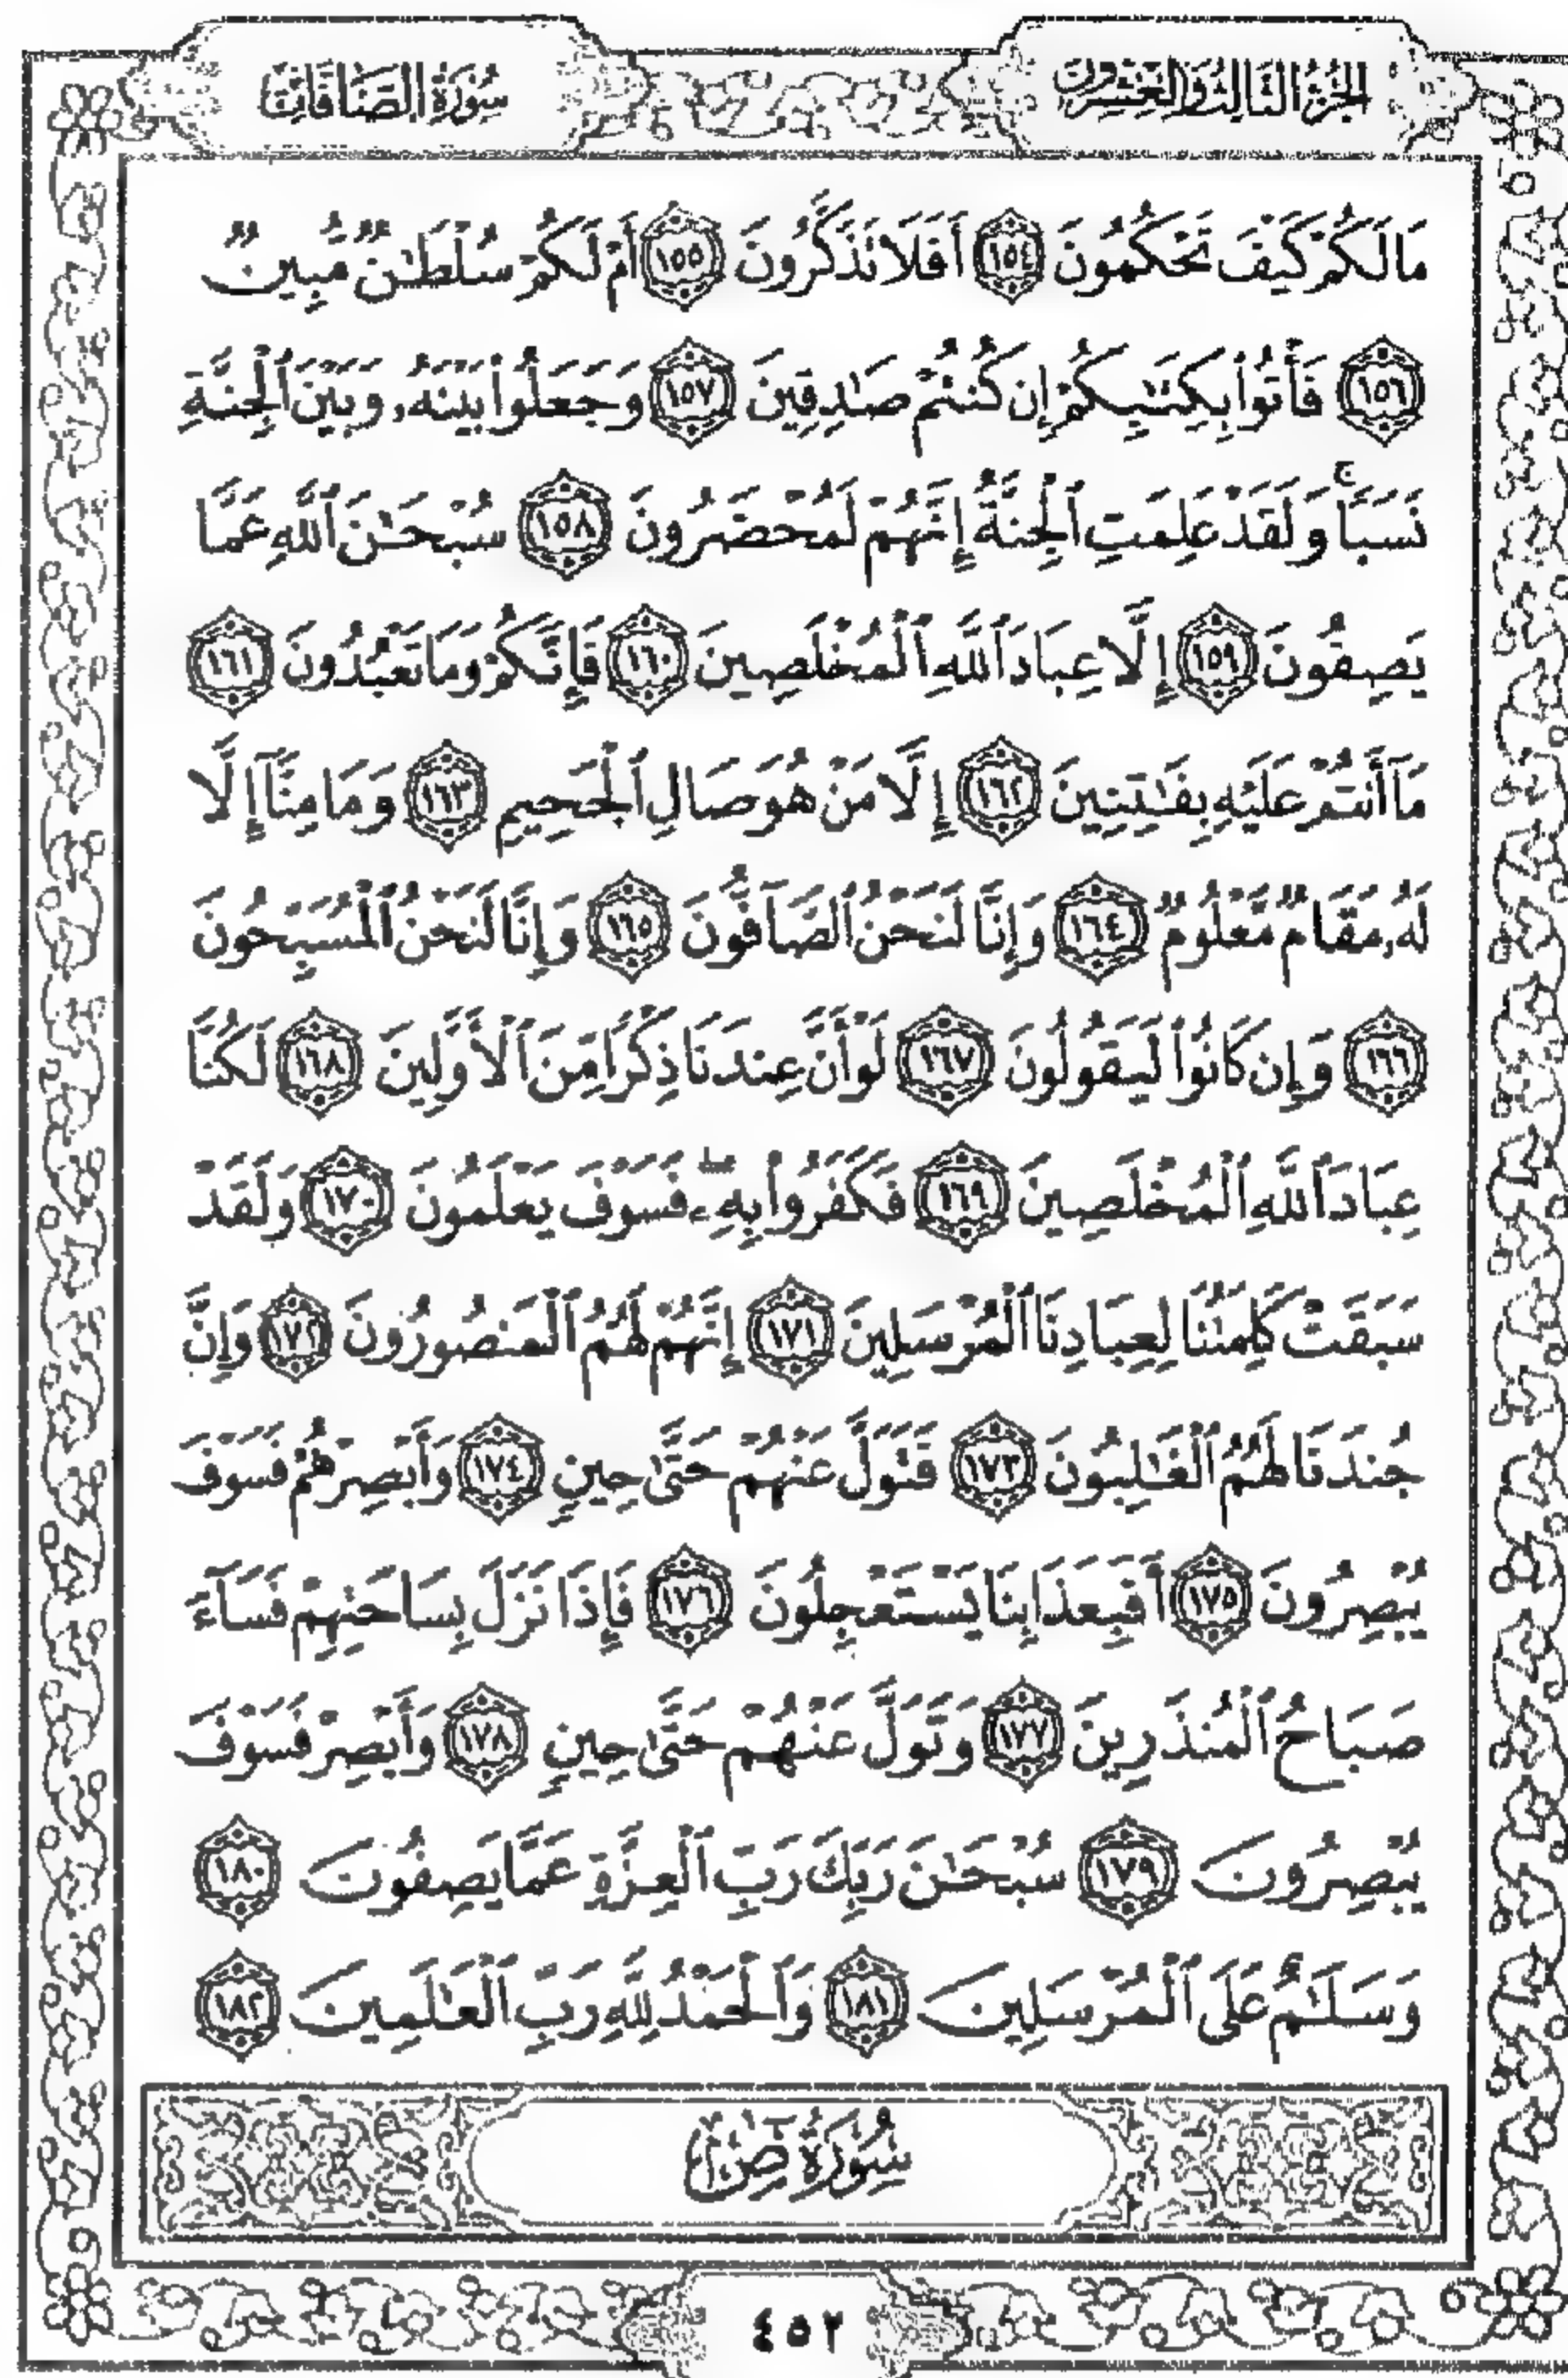 الجزء الثالث والعشرون
سورة الصافات
مَا لَكُمْ كَيْفَ تَحْكُمُونَ ١٥٤ أَفَلَا تَذَكَّرُونَ ١٥٥ أَمْ لَكُمْ سُلْطَٰنٌ مُّبِينٌ
١٥٦ فَأْتُوا۟ بِكِتَٰبِكُمْ إِن كُنتُمْ صَٰدِقِينَ ١٥٧ وَجَعَلُوا۟ بَيْنَهُۥ وَبَيْنَ ٱلْجِنَّةِ
نَسَبًا ۚ وَلَقَدْ عَلِمَتِ ٱلْجِنَّةُ إِنَّهُمْ لَمُحْضَرُونَ ١٥٨ سُبْحَٰنَ ٱللَّهِ عَمَّا
يَصِفُونَ ١٥٩ إِلَّا عِبَادَ ٱللَّهِ ٱلْمُخْلَصِينَ ١٦٠ فَإِنَّكُمْ وَمَا تَعْبُدُونَ ١٦١
مَآ أَنتُمْ عَلَيْهِ بِفَٰتِنِينَ ١٦٢ إِلَّا مَنْ هُوَ صَالِ ٱلْجَحِيمِ ١٦٣ وَمَا مِنَّآ إِلَّا
لَهُۥ مَقَامٌ مَّعْلُومٌ ١٦٤ وَإِنَّا لَنَحْنُ ٱلصَّآفُّونَ ١٦٥ وَإِنَّا لَنَحْنُ ٱلْمُسَبِّحُونَ
١٦٦ وَإِن كَانُوا۟ لَيَقُولُونَ ١٦٧ لَوْ أَنَّ عِندَنَا ذِكْرًا مِّنَ ٱلْأَوَّلِينَ ١٦٨ لَكُنَّا
عِبَادَ ٱللَّهِ ٱلْمُخْلَصِينَ ١٦٩ فَكَفَرُوا۟ بِهِۦ ۖ فَسَوْفَ يَعْلَمُونَ ١٧٠ وَلَقَدْ
سَبَقَتْ كَلِمَتُنَا لِعِبَادِنَا ٱلْمُرْسَلِينَ ١٧١ إِنَّهُمْ لَهُمُ ٱلْمَنصُورُونَ ١٧٢ وَإِنَّ
جُندَنَا لَهُمُ ٱلْغَٰلِبُونَ ١٧٣ فَتَوَلَّ عَنْهُمْ حَتَّىٰ حِينٍ ١٧٤ وَأَبْصِرْهُمْ فَسَوْفَ
يُبْصِرُونَ ١٧٥ أَفَبِعَذَابِنَا يَسْتَعْجِلُونَ ١٧٦ فَإِذَا نَزَلَ بِسَاحَتِهِمْ فَسَآءَ
صَبَاحُ ٱلْمُنذَرِينَ ١٧٧ وَتَوَلَّ عَنْهُمْ حَتَّىٰ حِينٍ ١٧٨ وَأَبْصِرْ فَسَوْفَ
يُبْصِرُونَ ١٧٩ سُبْحَٰنَ رَبِّكَ رَبِّ ٱلْعِزَّةِ عَمَّا يَصِفُونَ ١٨٠
وَسَلَٰمٌ عَلَى ٱلْمُرْسَلِينَ ١٨١ وَٱلْحَمْدُ لِلَّهِ رَبِّ ٱلْعَٰلَمِينَ ١٨٢
سُورَةُ صٓ
٤٥٢